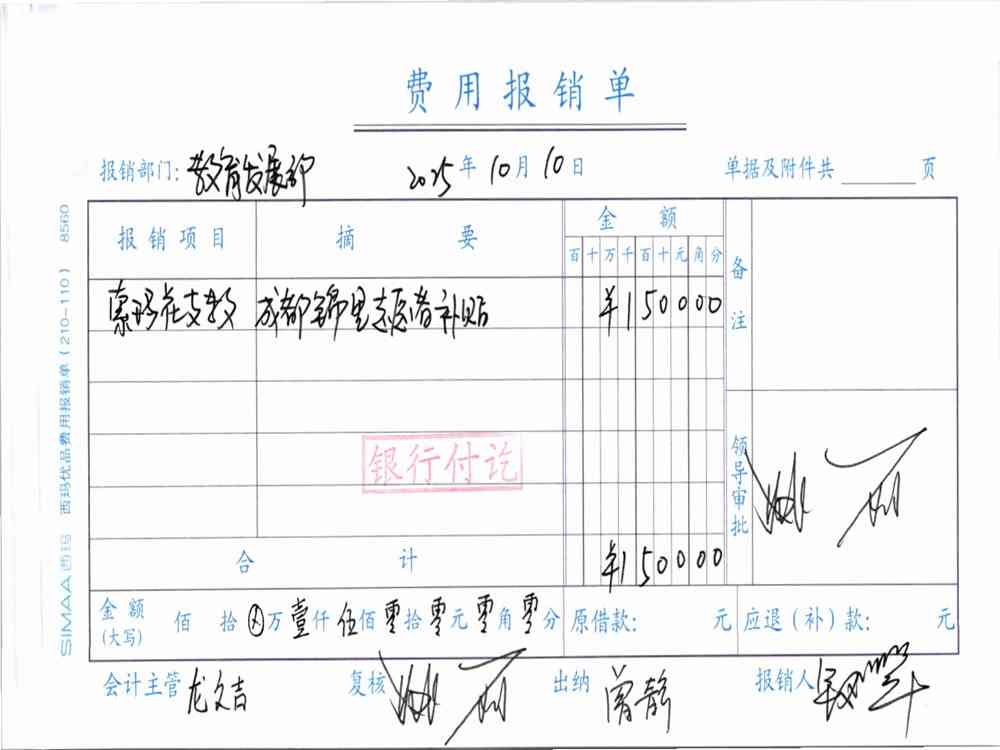 费用报销单
报销部门: 教育发展部 2025年10月10日 单据及附件共 页
报销项目 摘要 金额 备注
百十万千百十元角分
支教 成都锦里志愿者补贴 ¥150000
银行付讫
领导审批
合计 ¥150000
金额(大写) 佰 拾 ⊗万壹仟伍佰零拾零元零角零分 原借款: 元 应退(补)款: 元
会计主管 龙文吉 复核 出纳 曾静 报销人
SIMAA西玛 西玛优品费用报销单(210-110) 8560